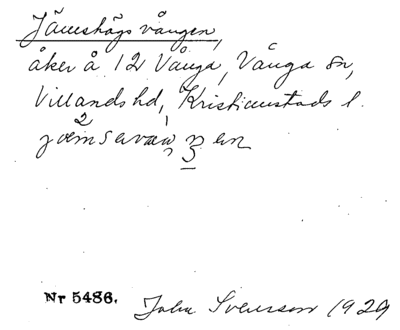 Jämshögsvången,
åker å 12 Vånga, Vånga sn,
Villands hd, Kristianstads l.
Nr 5486. John Svensson 1929